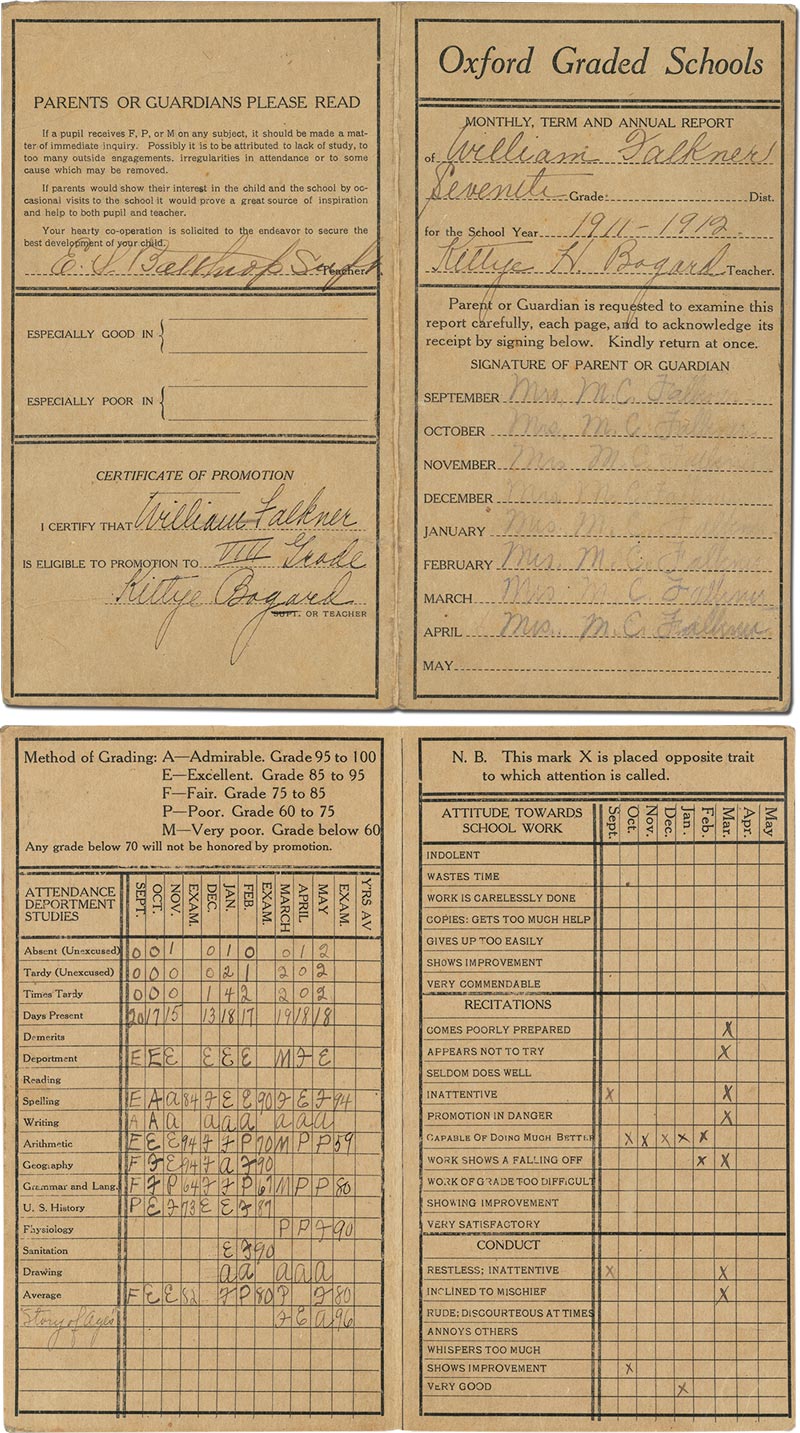 PARENTS OR GUARDIANS PLEASE READ
If a pupil receives F, P, or M on any subject, it should be made a mat-
ter of immediate inquiry. Possibly it is to be attributed to lack of study, to
too many outside engagements. irregularities in attendance or to some
cause which may be removed.
If parents would show their interest in the child and the school by oc-
casional visits to the school it would prove a great source of inspiration
and help to both pupil and teacher.
Your hearty co-operation is solicited to the endeavor to secure the
best development of your child.
Supt. Teacher
ESPECIALLY GOOD IN
ESPECIALLY POOR IN
CERTIFICATE OF PROMOTION
I CERTIFY THAT William Falkner
IS ELIGIBLE TO PROMOTION TO VIII Grade
Kittye Bogard
SUPT. OR TEACHER
Oxford Graded Schools
MONTHLY, TERM AND ANNUAL REPORT
of William Falkner
Grade Dist.
for the School Year 1911-1912
Kittye H. Bogard Teacher.
Parent or Guardian is requested to examine this
report carefully, each page, and to acknowledge its
receipt by signing below. Kindly return at once.
SIGNATURE OF PARENT OR GUARDIAN
SEPTEMBER Mrs. M. C. Falkner
OCTOBER Mrs. M. C. Falkner
NOVEMBER Mrs. M. C. Falkner
DECEMBER Mrs. M. C. Falkner
JANUARY Mrs. M. C. Falkner
FEBRUARY Mrs. M. C. Falkner
MARCH Mrs. M. C. Falkner
APRIL Mrs. M. C. Falkner
MAY
Method of Grading: A—Admirable. Grade 95 to 100
E—Excellent. Grade 85 to 95
F—Fair. Grade 75 to 85
P—Poor. Grade 60 to 75
M—Very poor. Grade below 60
Any grade below 70 will not be honored by promotion.
ATTENDANCE DEPORTMENT STUDIES SEPT. OCT. NOV. EXAM. DEC. JAN. FEB. EXAM. MARCH APRIL MAY EXAM. YRS AV
Absent (Unexcused) 0 0 1 0 1 0 0 1 2
Tardy (Unexcused) 0 0 0 0 2 1 2 0 2
Times Tardy 0 0 0 1 4 2 2 0 2
Days Present 20 17 15 13 18 17 19 18 18
Demerits
Deportment E E E E E E M F E
Reading
Spelling E A A 84 F E E 90 F E F 94
Writing A A a a a a a a a
Arithmetic E E E 94 F F P 70 M P P 59
Geography F F E 94 F a F 90
Grammar and Lang. F F P 64 F F P 67 M P P 80
U. S. History P E F 73 E E F 87
Physiology P P F 90
Sanitation E F 90
Drawing a a a a a
Average F E E 82 F P 80 P F 80
"Story of Ages" F E a 96
N. B. This mark X is placed opposite trait
to which attention is called.
ATTITUDE TOWARDS SCHOOL WORK Sept. Oct. Nov. Dec. Jan. Feb. Mar. Apr. May
INDOLENT
WASTES TIME
WORK IS CARELESSLY DONE
COPIES: GETS TOO MUCH HELP
GIVES UP TOO EASILY
SHOWS IMPROVEMENT
VERY COMMENDABLE
RECITATIONS
COMES POORLY PREPARED X
APPEARS NOT TO TRY X
SELDOM DOES WELL
INATTENTIVE X X
PROMOTION IN DANGER X
CAPABLE OF DOING MUCH BETTER X X X X X
WORK SHOWS A FALLING OFF X X
WORK OF GRADE TOO DIFFICULT
SHOWING IMPROVEMENT
VERY SATISFACTORY
CONDUCT
RESTLESS; INATTENTIVE X X
INCLINED TO MISCHIEF X
RUDE; DISCOURTEOUS AT TIMES
ANNOYS OTHERS
WHISPERS TOO MUCH
SHOWS IMPROVEMENT X
VERY GOOD X